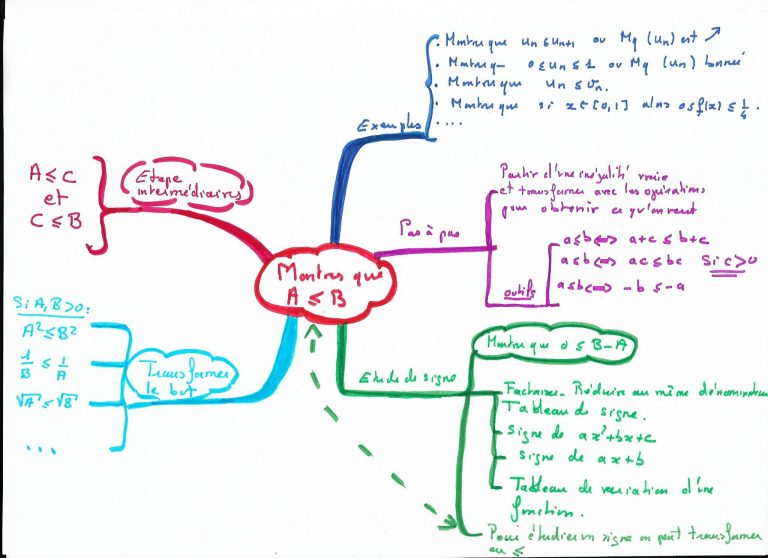 Montrer que
A ≤ B
Exemples
. Montrer que un ≤ un+1 ou Mq (un) est ↗
. Montrer q- 0 ≤ un ≤ 1 ou Mq (un) borné
. Montrer que un ≤ vn.
. Montrer que si x ∈ [0,1] alors 0 ≤ f(x) ≤ 1/4.
. ...
Pas à pas
Partir d'une inégalité vraie
et transformer avec les opérations
pour obtenir ce qu'on veut
outils
a≤b ⟺ a+c ≤ b+c
a≤b ⟺ ac ≤ bc Si c>0
a≤b ⟺ -b ≤ -a
Etude de signe
Montrer que 0 ≤ B-A
Factoriser - Réduire au même dénominateur
Tableau de signe.
Signe de ax²+bx+c
signe de ax+b
Tableau de variation d'une
fonction.
Pour étudier un signe on peut transformer
en ≤
Etape
intermédiaires
A ≤ C
et
C ≤ B
Transformer
le but
Si A, B > 0 :
A² ≤ B²
1/B ≤ 1/A
√A ≤ √B
...